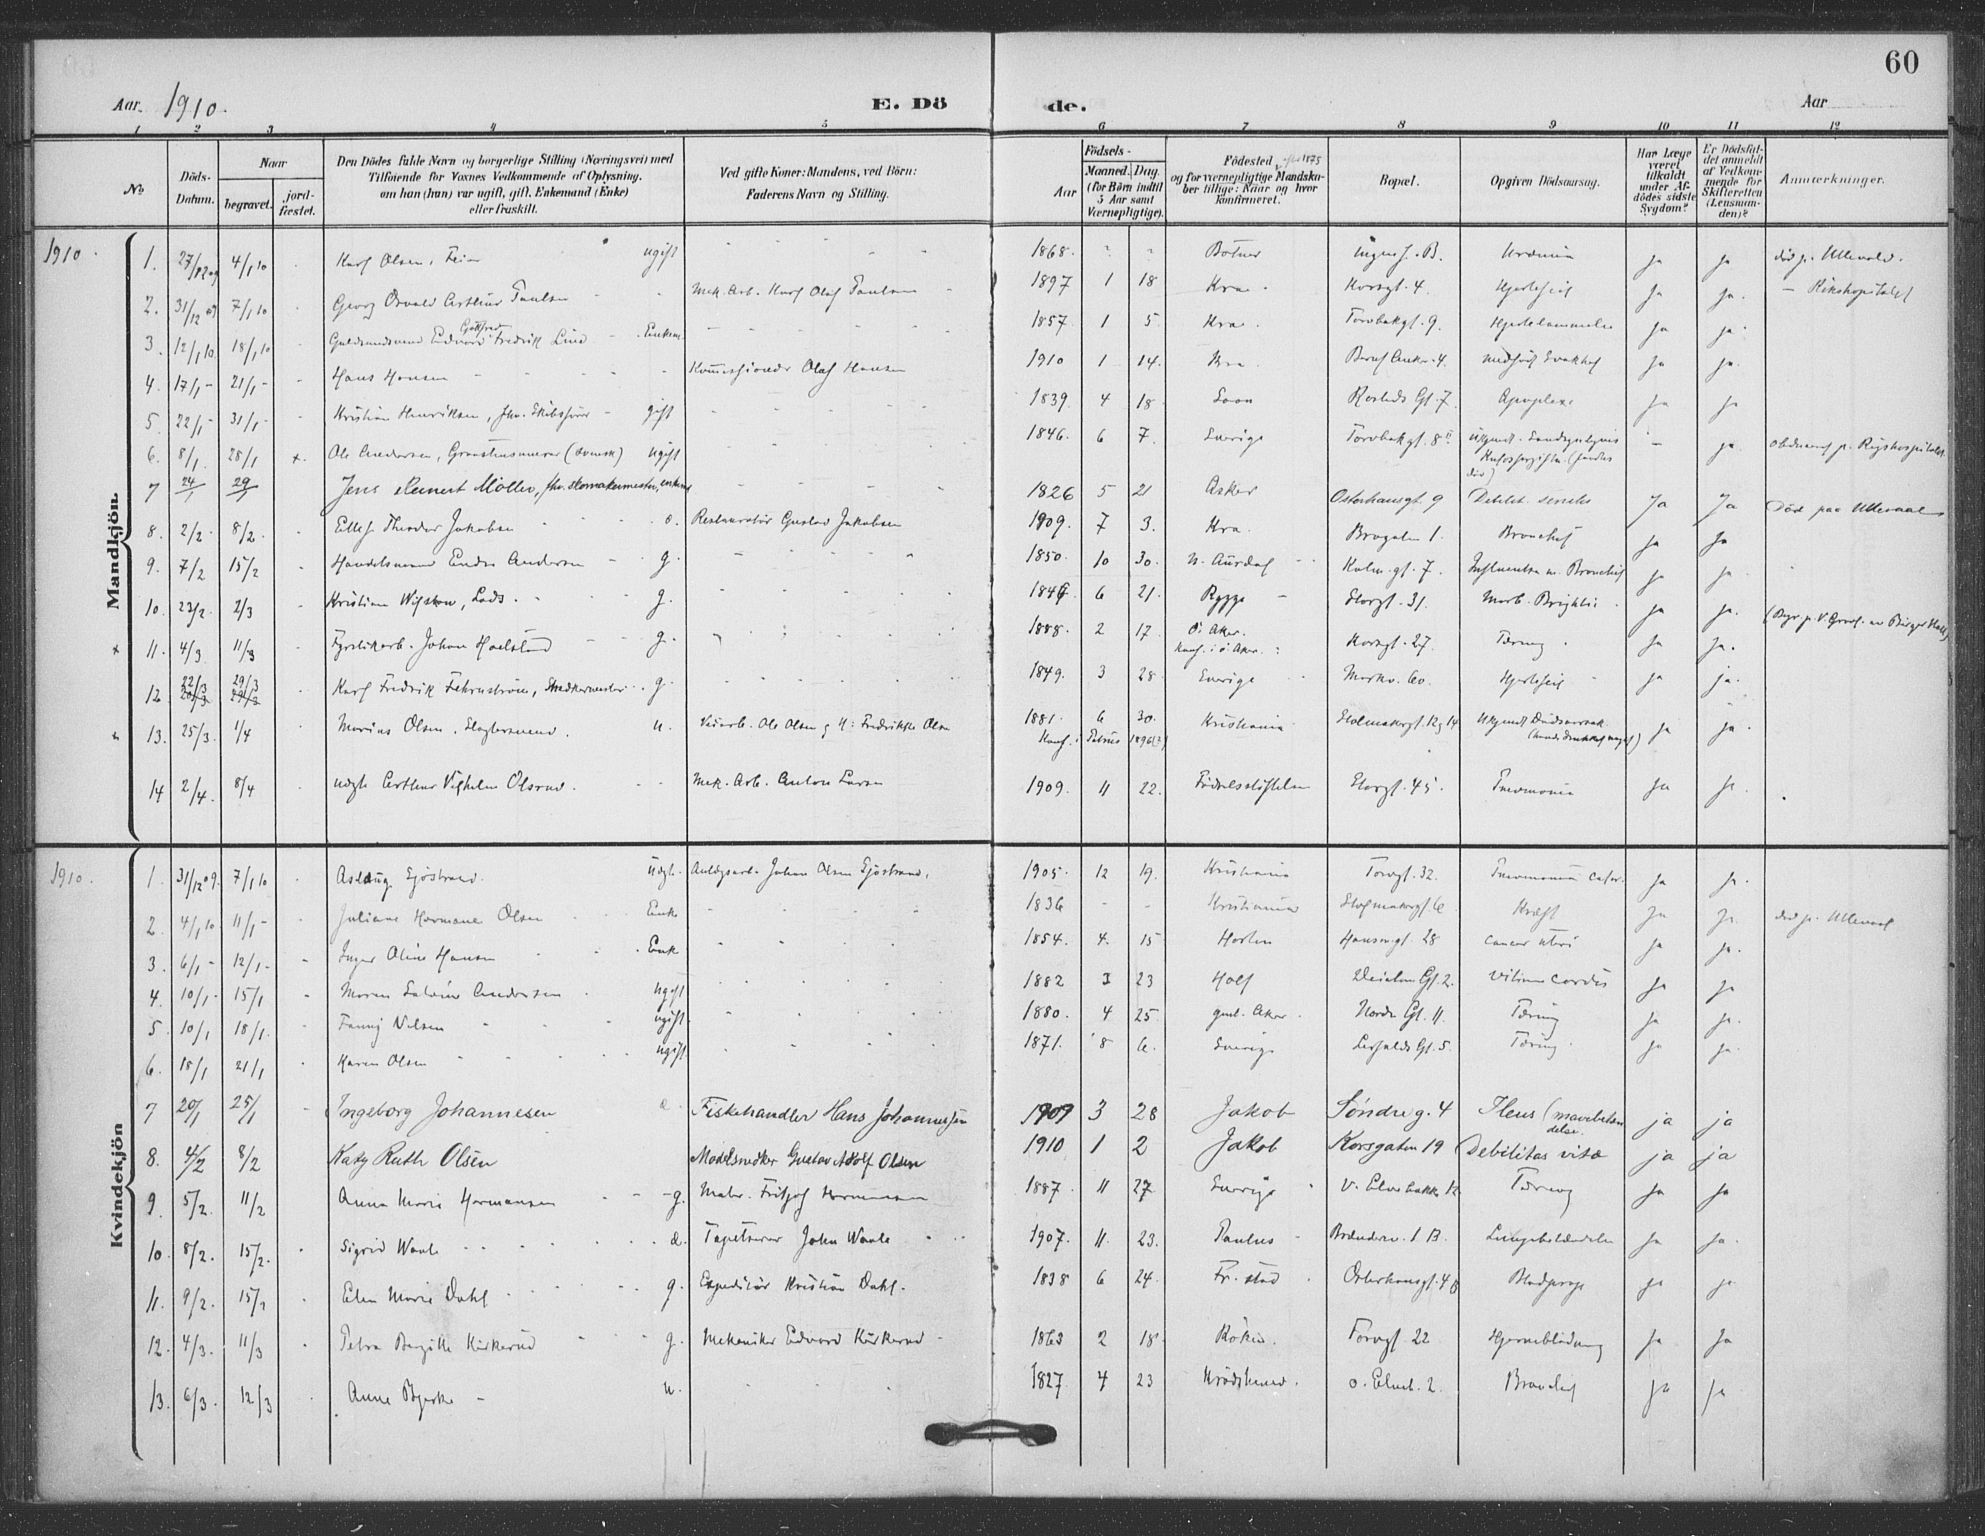 60
Aar 1910. E. Dö de. Aar
1 2 3 4 5 6 7 8 9 10 11 12
No
Döds-Datum.
Naar begravet. jord-fæstet.
Den Dödes fulde Navn og borgerlige Stilling (Næringsvei) med Tilföiende for Voxnes Vedkommende af Oplysning, om han (hun) var ugift, gift, Enkemand (Enke) eller fraskilt.
Ved gifte Koner: Mandens, ved Börn: Faderens Navn og Stilling.
Födsels-
Aar Maaned. Dag. (for Börn indtil 5 Aar samt Værnepligtige).
Födested efter 1875 og for værnepligtige Mandskaber tillige: Naar og hvor konfirmeret.
Bopæl.
Opgiven Dödsaarsag.
Har Læge været tilkaldt under Afdödes sidste Sygdom?
Er Dödsfaldet anmeldt af Vedkommende for Skifteretten (Lensmanden)?
Anmærkninger.
Mandkjön
1910. 1. 27/12 09 4/1 10 Karl Olsen, Feier ugift 1868. Botner B. Urämia ja ja död p. Ullevold.
2. 31/12 09 7/1 10 Georg Osvald Arthur Paulsen Mek. Arb. Karl Olaf Paulsen 1897 1 18 Kra. Korsgt. 4. Hjertefeil ja ja. - Rikshospitalet
3. 12/1 10 18/1 10 Guldsmedsvend Edvard Gottfred Fredrik Lind Enkem. 1857. 1 5. Kra. Torvbakgt. 9. Hjertelammelse ja ja.
4. 17/1 - 21/1 - Hans Hansen Kommissionær Olaf Hansen 1910 1 14. Kra. Bernt Ankers. 4. medfödt Svakhed ja ja.
5. 22/1 - 31/1 - Kristian Henriksen, fhv. Skibsförer gift 1839 4 18. Soon Rosteds Gt. 7. Apoplexi ja ja
6. 8/1. 28/1 +. Ole Andersen, (svensk) ugift 1846. 6 7. Sverige Torvbakgt. 8 II ukjendt. Sandsynligvis (fundet död) - ja. obduceret p. Rigshospitalet.
7 24/1 29/1 Jens Reinert Möller, fhv. skomakermester, enkem. 1826 5 21 Asker Osterhausgt 9 Debilit. senilis Ja Ja Död paa Ullevaal
8. 2/2 - 8/2. Theodor Jakobsen Restauratör Gustav Jakobsen 1909. 7 3. Kra. Brogaten 1. Bronchit ja ja
9. 7/2 15/2 Handelsmand Endre Andersen g. 1850. 10 30. N. Aurdal Kalm. gt. 7. Influentsa m. Bronchit ja ja.
10. 23/2. 2/3 Kristian g. 6 21. Rygge Storgt. 31. Morb. Brightii ja ja.
+ 11. 4/3 11/3 Fyrstikarb. Johan g. 1888. 2 17. Ö. Aker. Konf. i ö. Aker. Korsgt. 27. Tæring ja ja.
12 22/3 29/3 Karl Fredrik g. 1849. 3 28. Sverige Markv. 60. Hjertefeil ja ja.
13. 25/3. 1/4 Marius Olsen, Slagtersvend. u. Veiarb. Ole Olsen Fredrikke Olsen 1881. 6 30. Konf. i Petrus 1896(?) Kristiania Holmakergt. 12 g 14 Ukjendt Dödsaarsak ja ja.
14 2/4. 8/4 uægte Arthur Vilhelm Olsrud. Mek. Arb. Anton Larsen 1909. 11 22. Födselsstiftelsen Storgt. 45. Pneumonia ja ja.
Kvindekjön
1910. 1. 31/12 09. 7/1 10 Aslaug Sjöstrand uægt. Anlægsarb. Johan Olsen Sjöstrand. 1905. 12 19. Kristiania Torvgt. 32. Pneumonia ja ja.
2. 4/1 10 11/1 - Juliane Hermane Olsen Enke 1836 - - Kristiania Holmakergt. 6 Kræft Ja ja. död p. Ullevaal
3. 6/1 - 12/1 - Inger Oline Hansen Enke 1854. 4. 15 Horten Hausmgt. 28 cancer uteri ja ja.
4. 10/1 - 15/1 Maren Andersen ugift 1882 3 23 Holt Gt. 2. vitium cordis ja ja
5. 10/1 18/1. Fanny Nilsen ugift 1880. 4 25. gml. Aker. Nordre Gt. 11. Tæring ja ja.
6. 18/1 21/1 Karen Olsen ugift 1871. 8 6. Sverige Gt. 5. Tæring ja ja.
7 20/1 25/1 Ingeborg Johannesen Fiskehandler Hans Johannessen 1909 3 28 Jakob Søndre g. 4 Ileus ja ja
8. 4/2 8/2 Katy Ruth Olsen Modelsnedker Gustav Adolf Olsen 1910 1 2 Jakob Korsgaten 19 Debilitas vitæ ja ja
9 5/2. 11/2 Anna Marie Hermansen g. Maler Fritjof Hermansen 1887 11 27 Sverige V. Elvebakke 12 Tæring ja ja
10. 8/2. 15/2. Sigrid Waale Tapetserer John Waale 1907. 11. 23. Paulus Brænderv. 1 B. Lungebetændelse ja ja.
11. 9/2. 15/2 Elen Marie Dahl g. Expeditör Kristian Dahl. 1838 6 24. Fr. stad Osterhausgt. 4 B Blodprop ja ja
12. 4/3. 11/3 Petra Birgitte Kirkerud g. Mekaniker Edvard Kirkerud 1863 2 18 Röken. Torvgt. 22 Hjerneblödning ja ja
13. 6/3. 12/3 Anne Bjerke - u. 1827 4 23 Krödsherred. ö. Elveb. 2. Bronchit ja ja